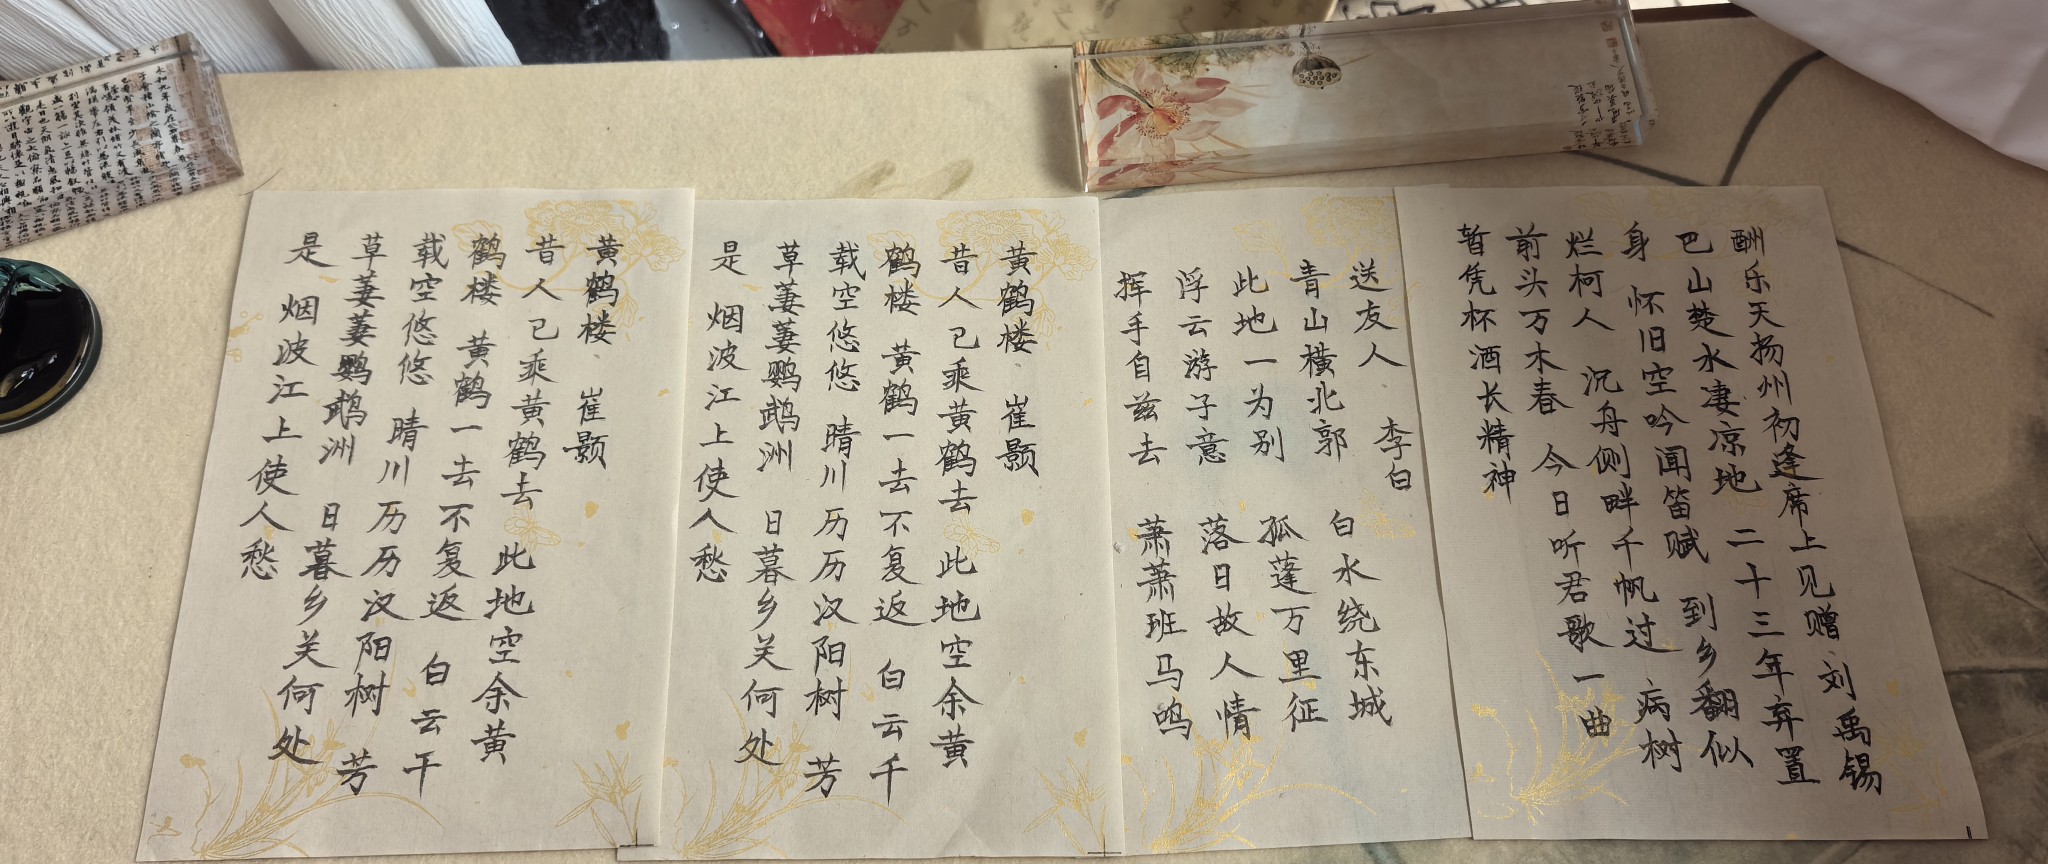 酬乐天扬州初逢席上见赠 刘禹锡
巴山楚水凄凉地 二十三年弃置
身 怀旧空吟闻笛赋 到乡翻似
烂柯人 沉舟侧畔千帆过 病树
前头万木春 今日听君歌一曲
暂凭杯酒长精神
送友人 李白
青山横北郭 白水绕东城
此地一为别 孤蓬万里征
浮云游子意 落日故人情
挥手自兹去 萧萧班马鸣
黄鹤楼 崔颢
昔人已乘黄鹤去 此地空余黄
鹤楼 黄鹤一去不复返 白云千
载空悠悠 晴川历历汉阳树 芳
草萋萋鹦鹉洲 日暮乡关何处
是 烟波江上使人愁
黄鹤楼 崔颢
昔人已乘黄鹤去 此地空余黄
鹤楼 黄鹤一去不复返 白云千
载空悠悠 晴川历历汉阳树 芳
草萋萋鹦鹉洲 日暮乡关何处
是 烟波江上使人愁